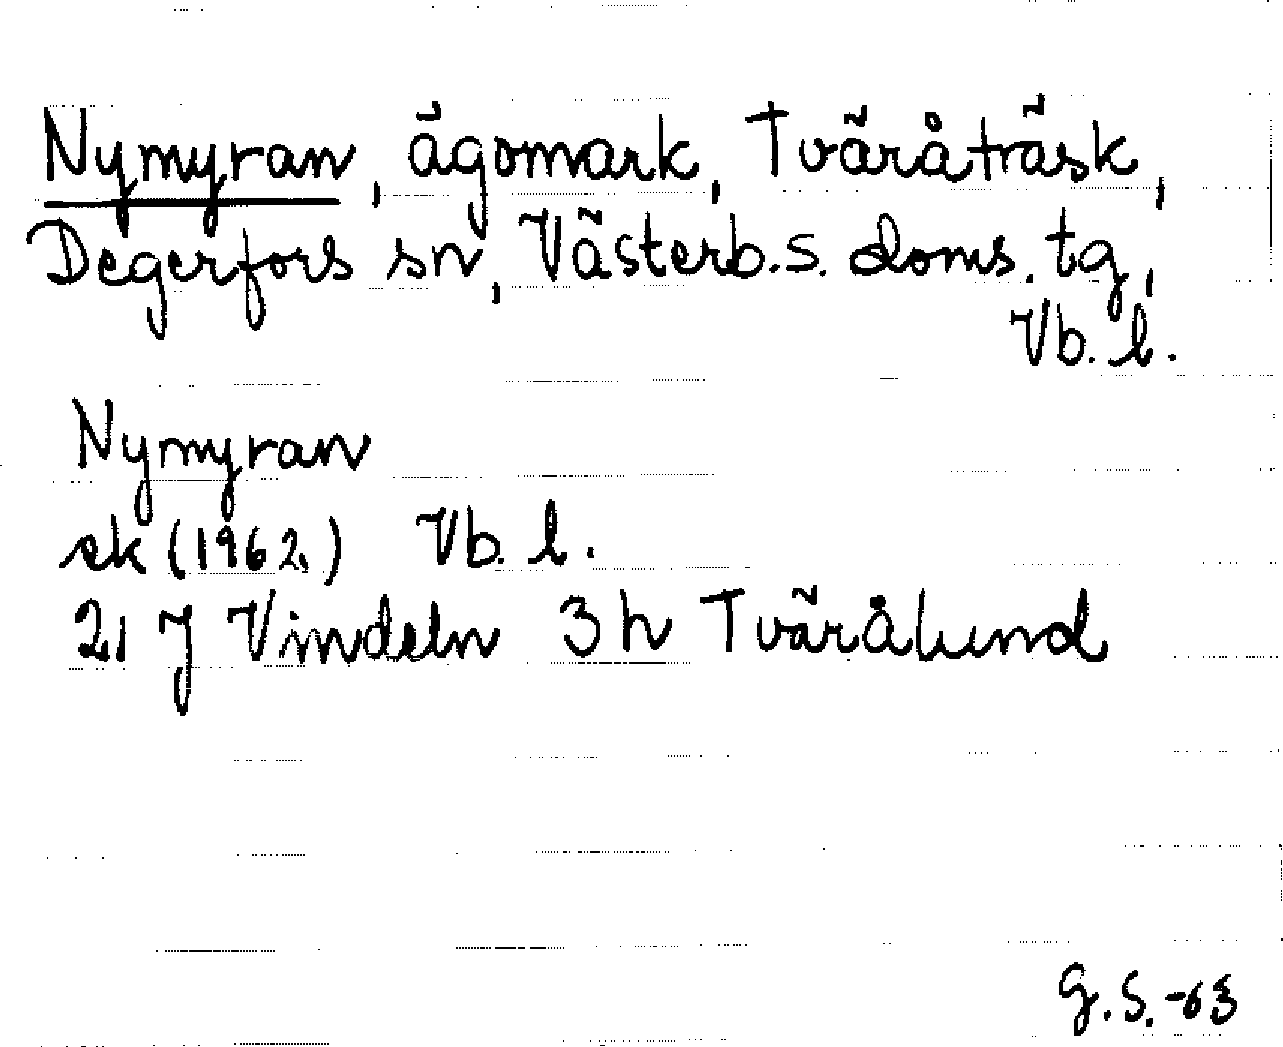 Nymyran, ägomark, Tväråträsk,
Degerfors sn, Västerb.s. doms. tg,
Vb. l.
Nymyran
ek (1962) Vb. l.
21 J Vindeln 3 h Tvärålund
G.S.-63